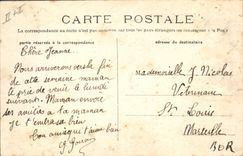 CARTE POSTALE
La correspondance au recto n'est pas acceptée par tous les pays étrangers
partie réservée à la correspondance
adresse du destinataire
Chère Jeanne
Nous arriverons vers la fin
de cette semaine maman
te prie de venir le lundi
suivant. Maman envoie
ses amitiés à ta maman
Je t'embrasse bien
Ton amie qui t'aime bien
Mademoiselle J. Nicolas
St Louis
Marseille
B D R